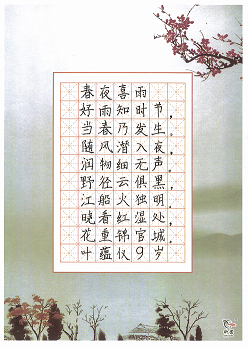 春夜喜雨
好雨知时节，
当春乃发生。
随风潜入夜，
润物细无声。
野径云俱黑，
江船火独明。
晓看红湿处，
花重锦官城。
叶蕴仪9岁